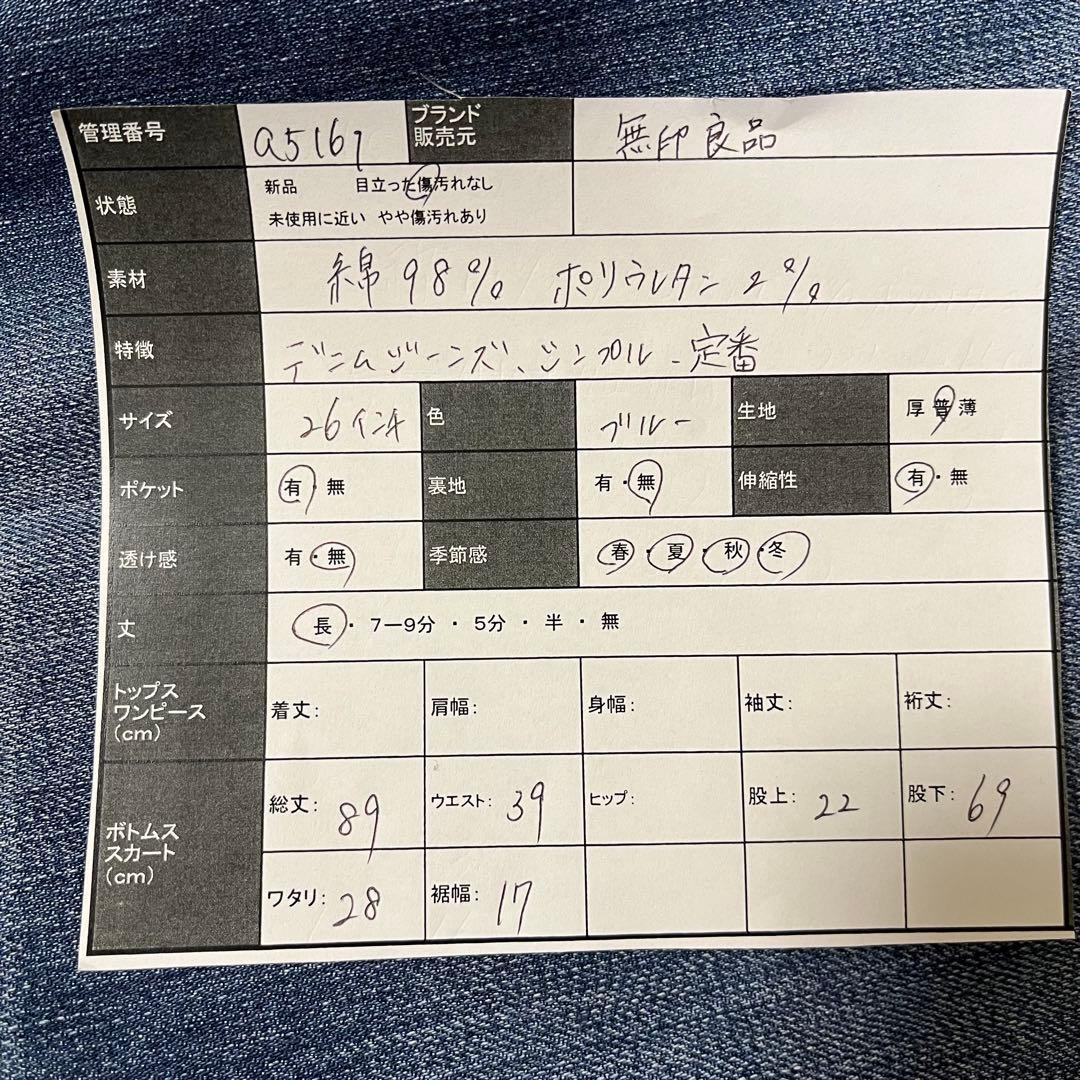 管理番号 a5167 ブランド 販売元 無印良品
状態 新品 目立った傷汚れなし
未使用に近い やや傷汚れあり
素材 綿98% ポリウレタン2%
特徴 デニムジーンズ、シンプル、定番
サイズ 26インチ 色 ブルー 生地 厚 普 薄
ポケット 有・無 裏地 有・無 伸縮性 有・無
透け感 有・無 季節感 春・夏・秋・冬
丈 長・7ー9分・5分・半・無
トップス ワンピース (cm) 着丈: 肩幅: 身幅: 袖丈: 裄丈:
ボトムス スカート (cm) 総丈: 89 ウエスト: 39 ヒップ: 股上: 22 股下: 69
ワタリ: 28 裾幅: 17